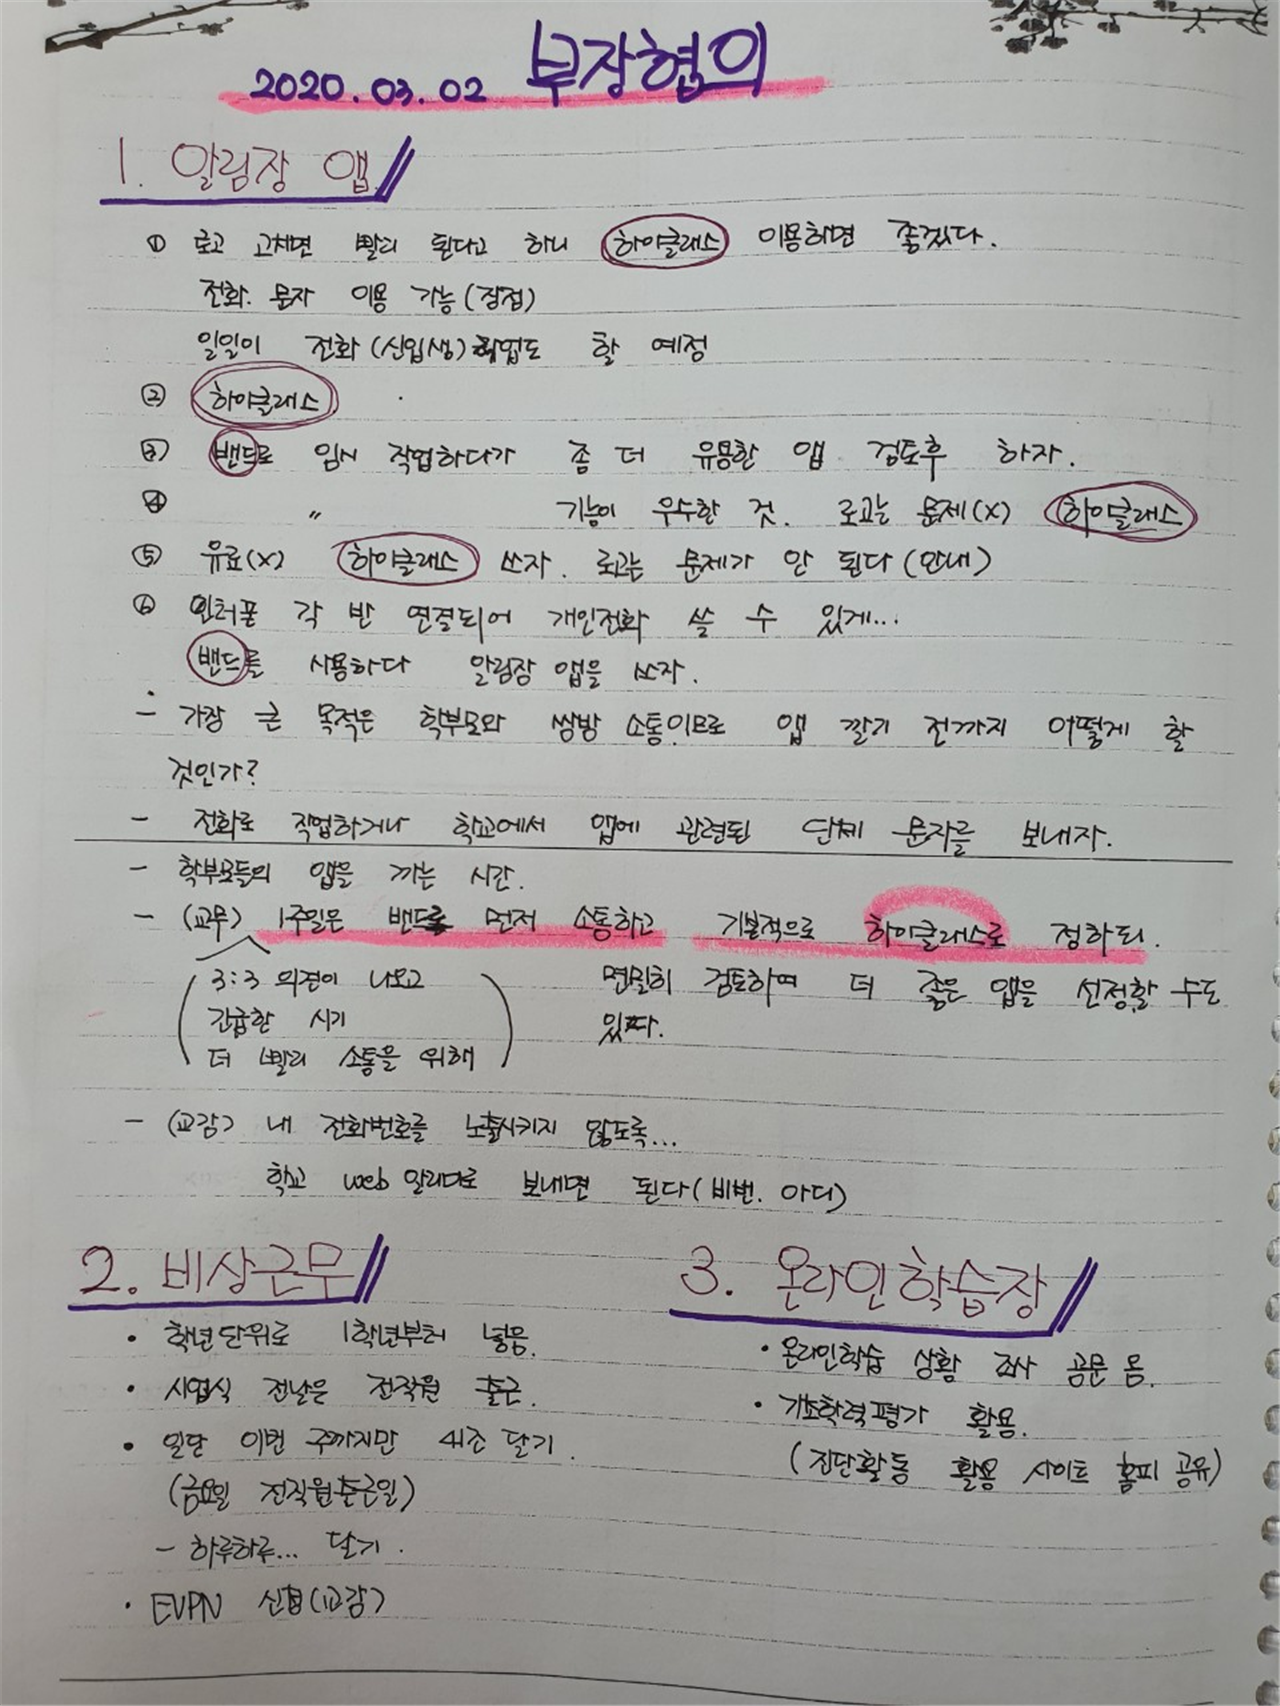 2020.03.02 부장협의
1. 알림장 앱
① 로고 고치면 빨리 된다고 하니 하이클래스 이용하면 좋겠다.
전화. 문자 이용 가능(장점)
일일이 전화(신입생)작업도 할 예정
② 하이클래스
③ 밴드로 임시 작업하다가 좀 더 유용한 앱 검토후 하자.
④ 〃 기능이 우수한 것. 로고는 문제(X) 하이클래스
⑤ 유료(X) 하이클래스 쓰자. 로고는 문제가 안 된다(안내)
⑥ 인터폰 각 반 연결되어 개인전화 쓸 수 있게...
밴드를 사용하다 알림장 앱을 쓰자.
- 가장 큰 목적은 학부모와 쌍방 소통이므로 앱 깔기 전까지 어떻게 할
것인가?
- 전화로 작업하거나 학교에서 앱에 관련된 단체 문자를 보내자.
- 학부모들의 앱을 까는 시간.
- (교무) 1주일은 밴드로 먼저 소통하고 기본적으로 하이클래스로 정하되.
(3:3 의견이 나오고 면밀히 검토하여 더 좋은 앱을 선정할 수도
긴급한 시기 있다.
더 빨리 소통을 위해)
- (교감) 내 전화번호를 노출시키지 않도록...
학교 web 알리미로 보내면 된다(비번. 아디)
2. 비상근무
• 학년단위로 1학년부터 넣음.
• 시업식 전날은 전직원 출근.
• 일단 이번 주까지만 4조 달기.
(금요일 전직원출근일)
- 하루하루... 달기.
• EVPN 신청(교감)
3. 온라인학습장
• 온라인학습 상황 조사 공문 옴.
• 기초학력평가 활용.
(진단활동 활용 사이트 홈피 공유)